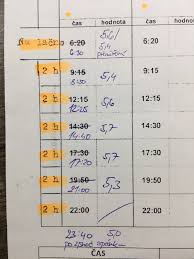 čas hodnota čas
Na lačno 6:20 5,1 6:20
6:30 5,4
2 h 9:15 5,4 9:15
8:50
2 h 12:15 5,6 12:15
12:05
2 h 14:30 5,7 14:30
14:40
2 h 17:30 5,7 17:30
17:20
2 h 19:50 5,3 19:50
21:00
2 h 22:00 22:00
23:40 5,0
po
ČAS